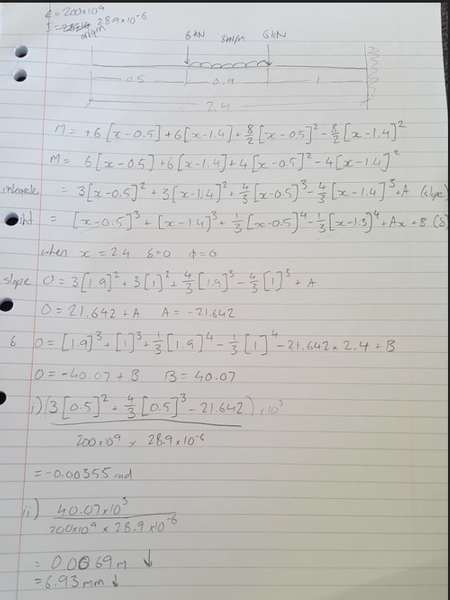 E = 200x10⁹
I = 28.9x10⁻⁶
origin
6kN 8kN/m 6kN
0.5 0.9 1
2.4
M = +6[x-0.5]+6[x-1.4]+8/2[x-0.5]²-8/2[x-1.4]²
M = 6[x-0.5]+6[x-1.4]+4[x-0.5]²-4[x-1.4]²
integrate = 3[x-0.5]²+3[x-1.4]²+4/3[x-0.5]³-4/3[x-1.4]³+A (slope)
= [x-0.5]³+[x-1.4]³+1/3[x-0.5]⁴-1/3[x-1.3]⁴+Ax+B (δ)
when x = 2.4 δ=0 φ=0
slope 0 = 3[1.9]²+3[1]²+4/3[1.9]³-4/3[1]³+A
0 = 21.642+A A = -21.642
δ 0 = [1.9]³+[1]³+1/3[1.9]⁴-1/3[1]⁴-21.642x2.4+B
0 = -40.07+B B = 40.07
i) (3[0.5]²+4/3[0.5]³-21.642)x10³
200x10⁹ x 28.9x10⁻⁶
= -0.00355 rad
ii) 40.07x10³
200x10⁹ x 28.9x10⁻⁶
= 0.0069m ↓
= 6.93mm ↓